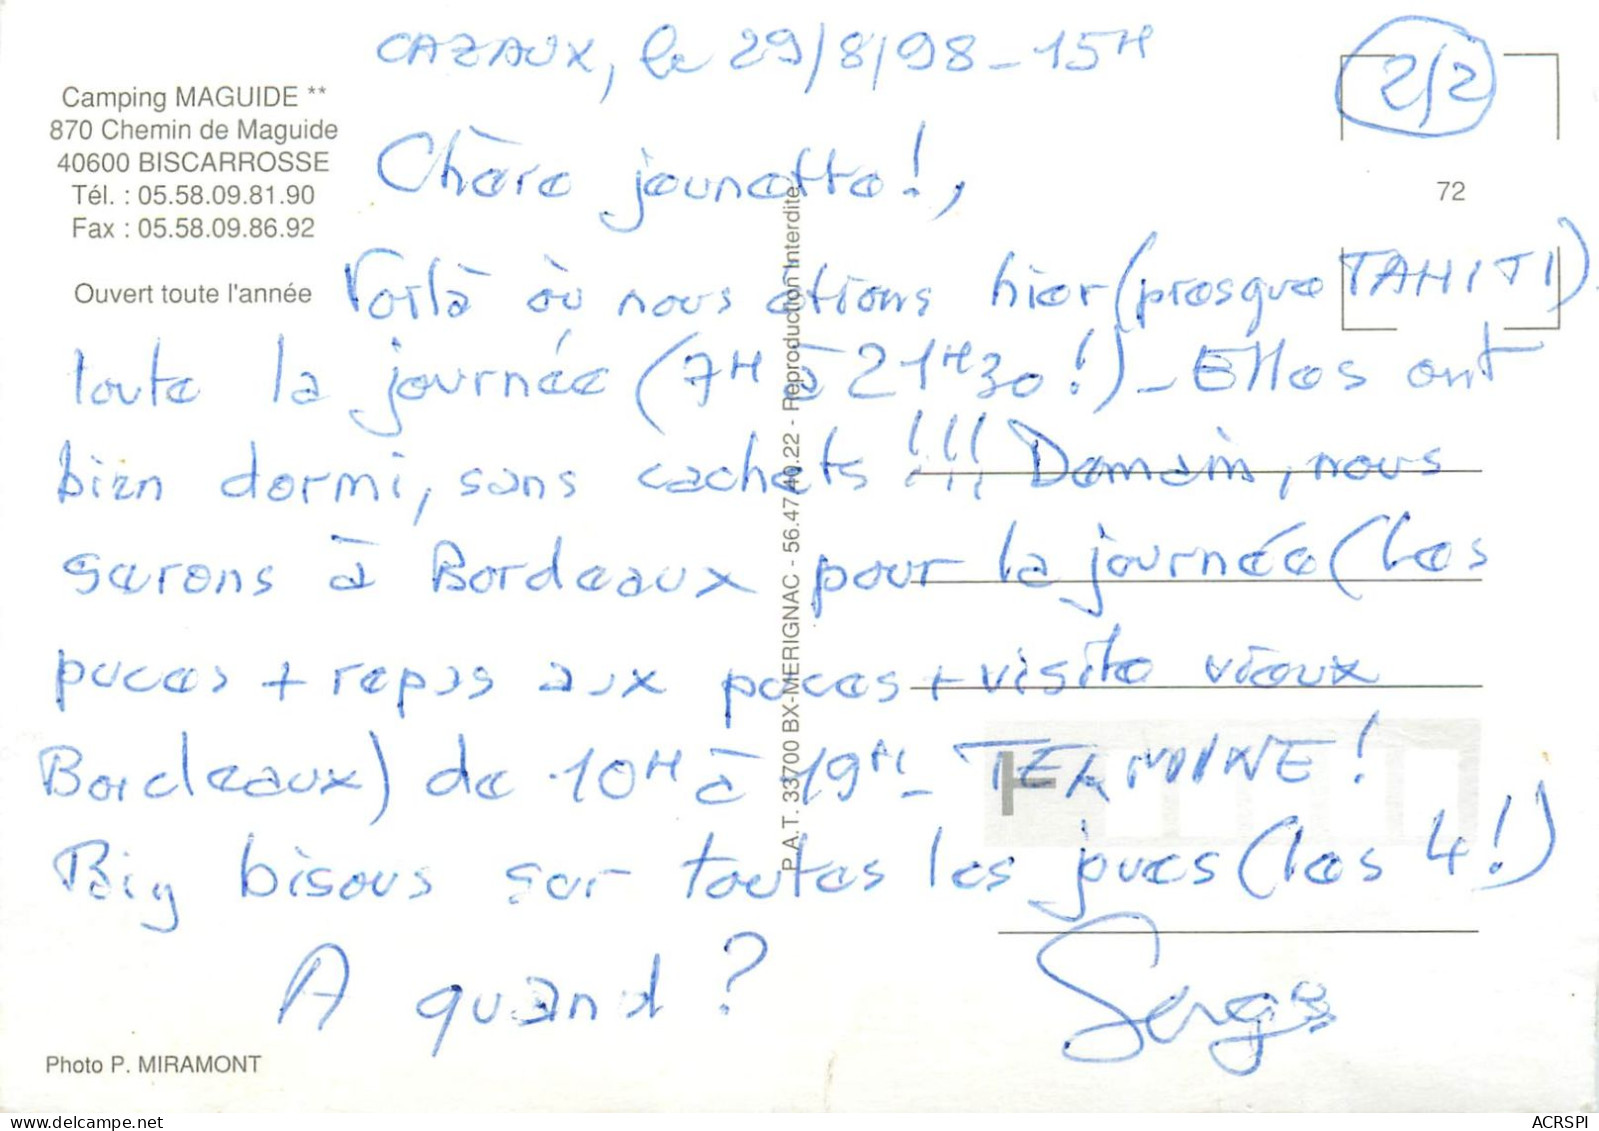 CAZAUX, le 29/8/98 - 15H
2/2
Camping MAGUIDE **
870 Chemin de Maguide
40600 BISCARROSSE
Tél. : 05.58.09.81.90
Fax : 05.58.09.86.92
Ouvert toute l'année
72
Chère jeunette!,
Voilà où nous étions hier (presque TAHITI)
toute la journée (7H à 21H30!) - Elles ont
bien dormi, sans cachets !!! Demain, nous
serons à Bordeaux pour la journée (les
puces + repas aux puces + visite vieux
Bordeaux) de 10H à 19H - TERMINE !
Big bisous sur toutes les joues (les 4!)
A quand ?
Serge
P.A.T. 33700 BX-MERIGNAC - 56.47.40.22 - Reproduction Interdite
Photo P. MIRAMONT
ACRSPI